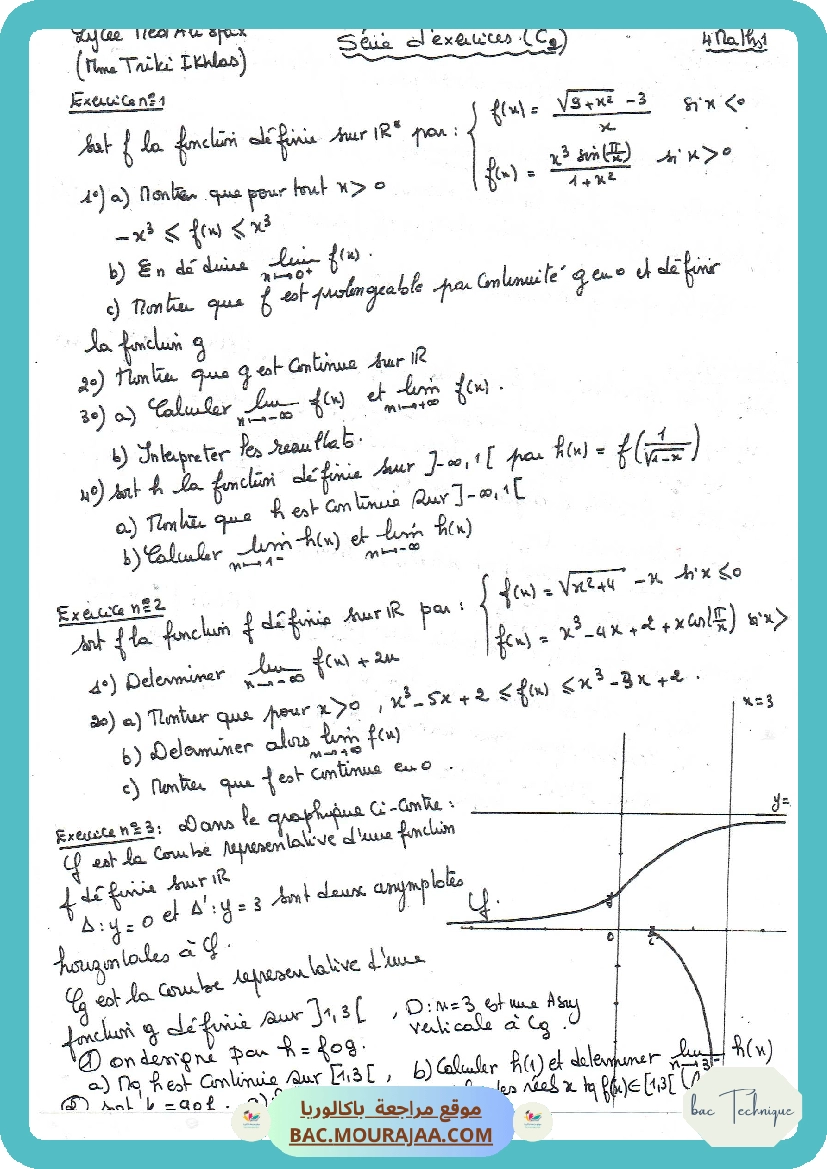 (Mme Triki Ikhlas)
Série d'exercices (C2)
4 Maths1
Exercice n°1
Soit f la fonction définie sur IR* par : { f(x) = (√(9+x²) - 3)/x si x < 0
f(x) = (x³ sin(π/x))/(1+x²) si x > 0
1°) a) Montrer que pour tout x > 0
-x³ ≤ f(x) ≤ x³
b) En déduire lim x→0⁺ f(x).
c) Montrer que f est prolongeable par continuité g en 0 et définir
la fonction g
2°) Montrer que g est continue sur IR
3°) a) Calculer lim x→-∞ f(x) et lim x→+∞ f(x).
b) Interpreter les resultats.
4°) soit h la fonction définie sur ]-∞,1[ par h(x) = f(1/√(1-x))
a) Montrer que h est continue sur ]-∞,1[
b) Calculer lim x→1⁻ h(x) et lim x→-∞ h(x)
Exercice n°2
soit f la fonction f définie sur IR par : { f(x) = √(x²+4) - x si x ≤ 0
f(x) = x³ - 4x + 2 + x cos(π/x) si x >
1°) Determiner lim x→-∞ f(x) + 2x
2°) a) Montrer que pour x > 0, x³ - 5x + 2 ≤ f(x) ≤ x³ - 3x + 2.
b) Determiner alors lim x→+∞ f(x)
c) Montrer que f est continue en 0.
x = 3
y =
Exercice n°3 : Dans le graphique ci-contre :
Cf est la courbe représentative d'une fonction
f définie sur IR
Δ : y = 0 et Δ' : y = 3 sont deux asymptotes
horizontales à Cf.
Cf
0
Cg est la courbe représentative d'une
fonction g définie sur ]1,3[, D : x = 3 est une Asy
verticale à Cg.
① on designe par h = fog.
a) Mq h est continue sur [1,3[, b) Calculer h(1) et determiner lim x→3⁻ h(x)
② soit k = gof.
les réels x tq f(x) ∈ [1,3[
bac Technique
موقع مراجعة باكالوريا
BAC.MOURAJAA.COM